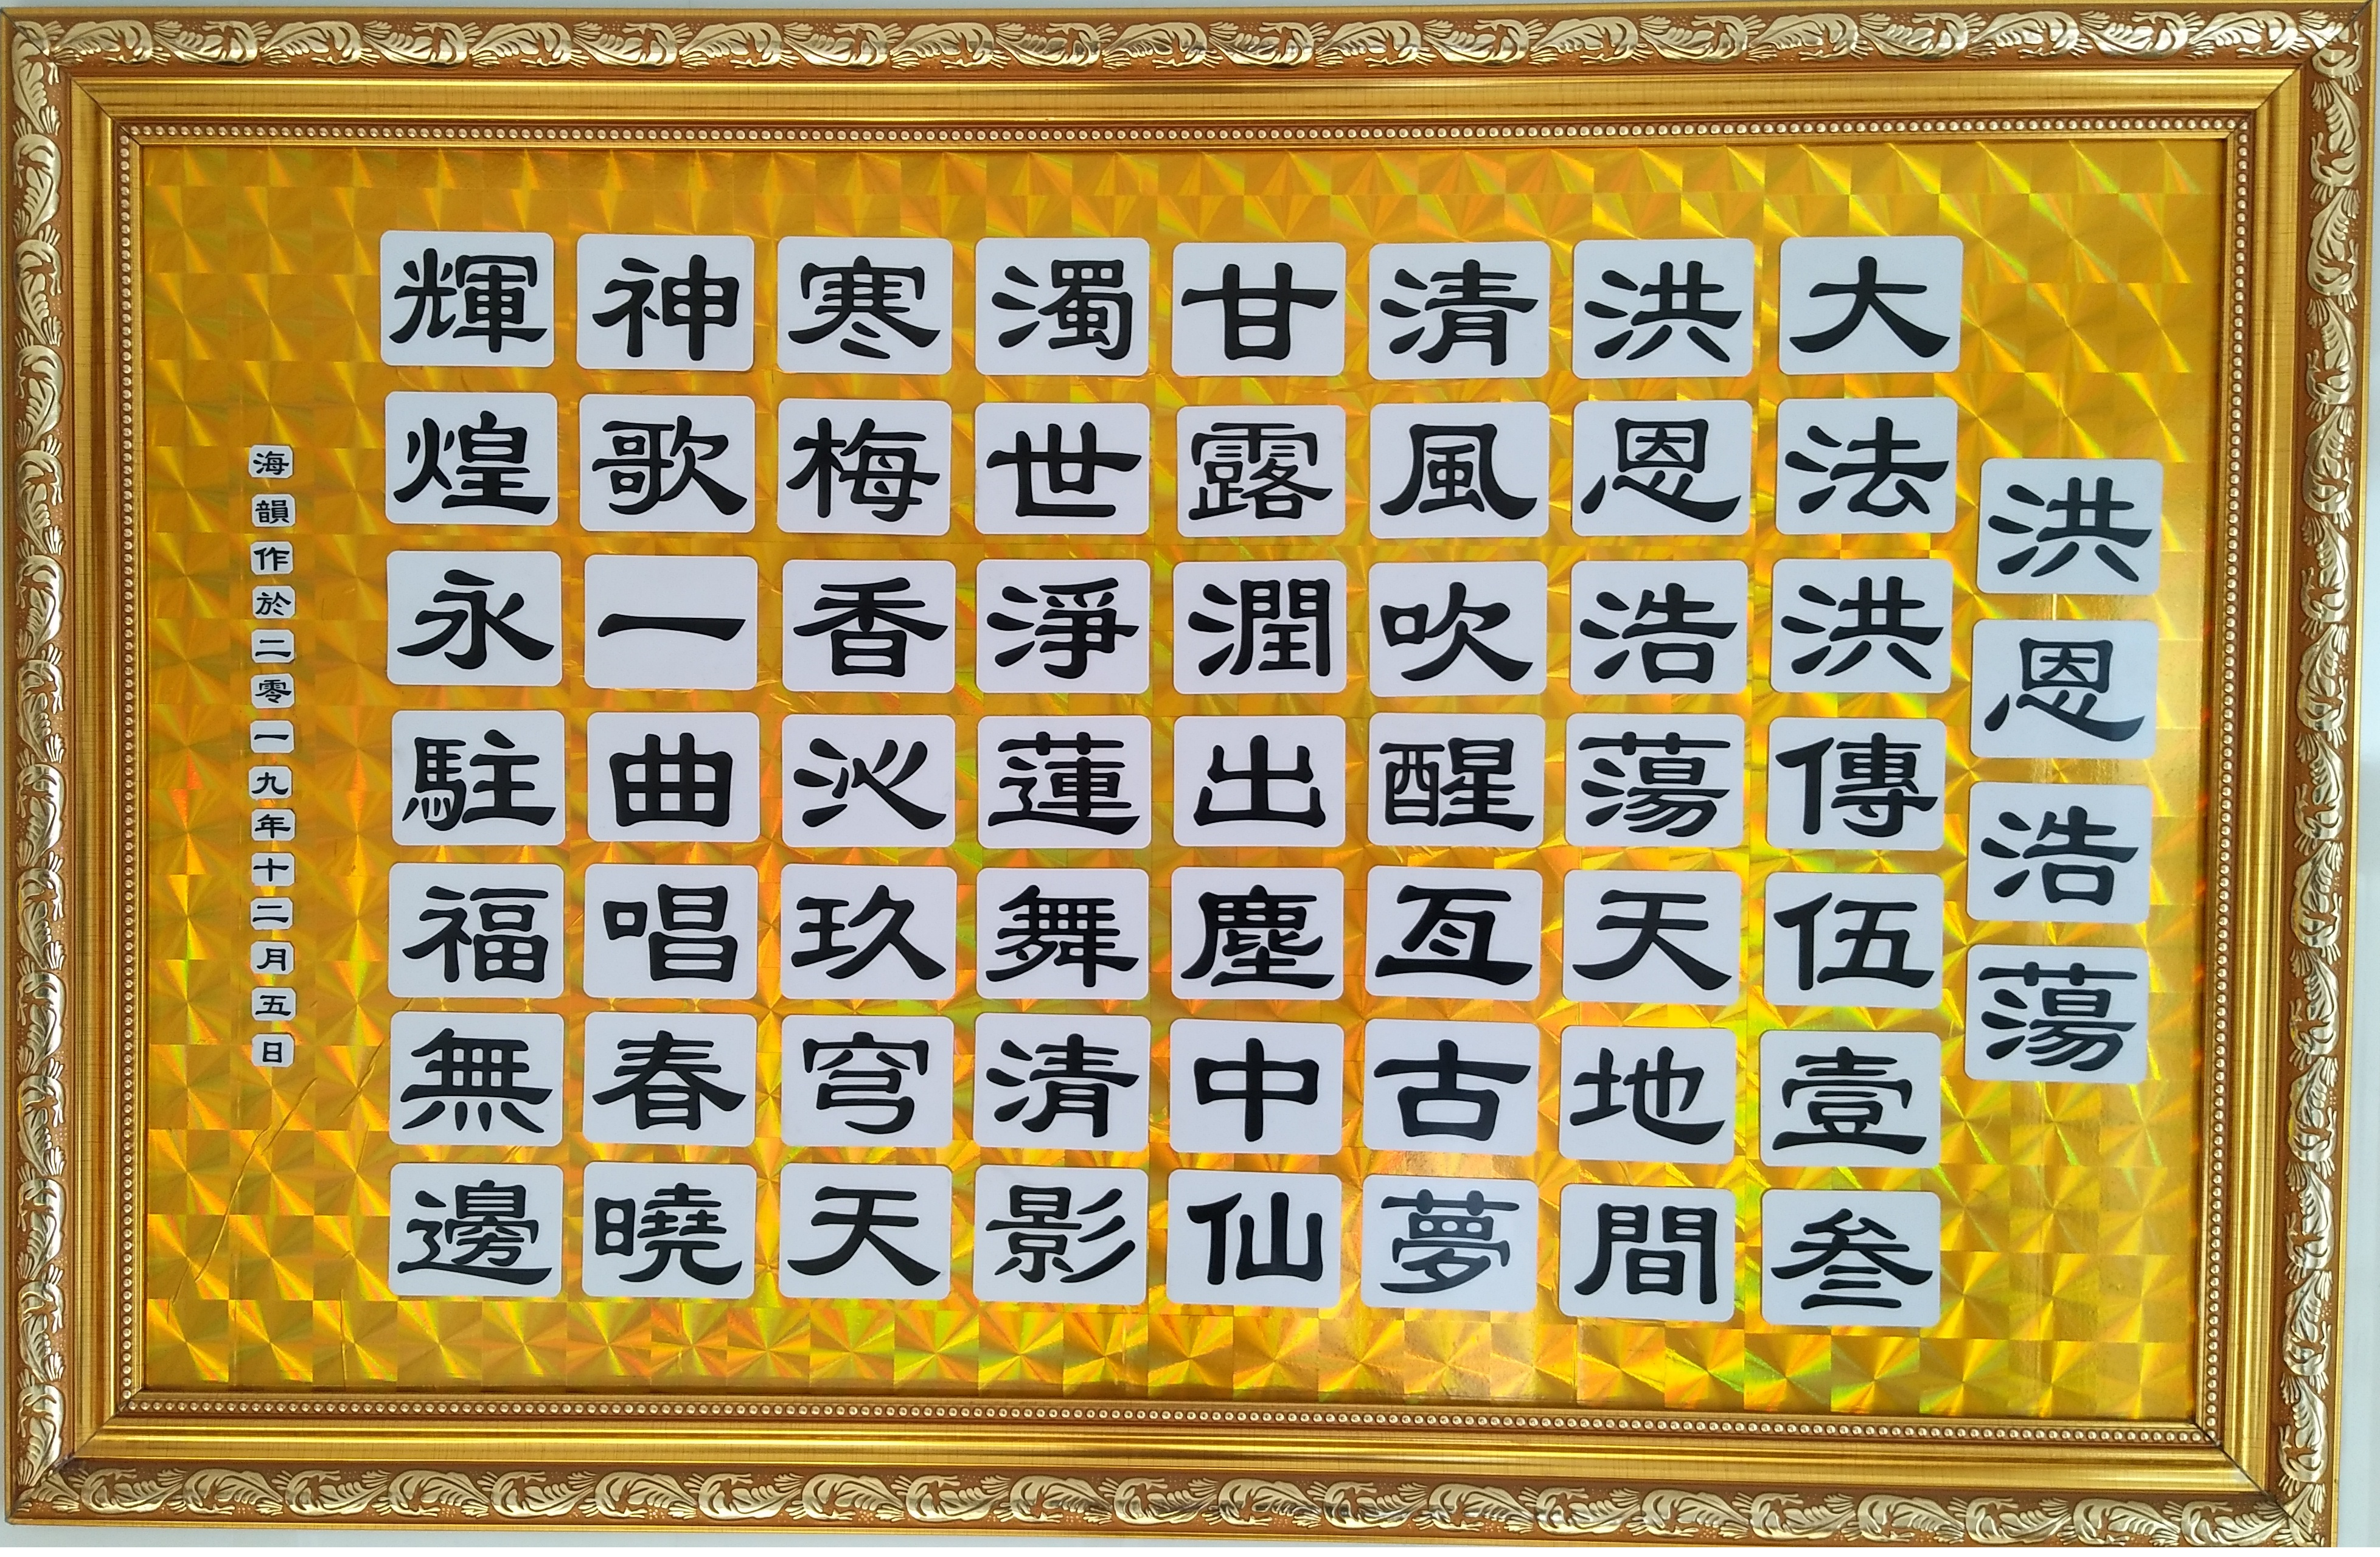 洪恩浩蕩
大法洪傳伍壹叁
洪恩浩蕩天地間
清風吹醒亙古夢
甘露潤出塵中仙
濁世淨蓮舞清影
寒梅香沁玖穹天
神歌一曲唱春曉
輝煌永駐福無邊
海韻作於二零一九年十二月五日